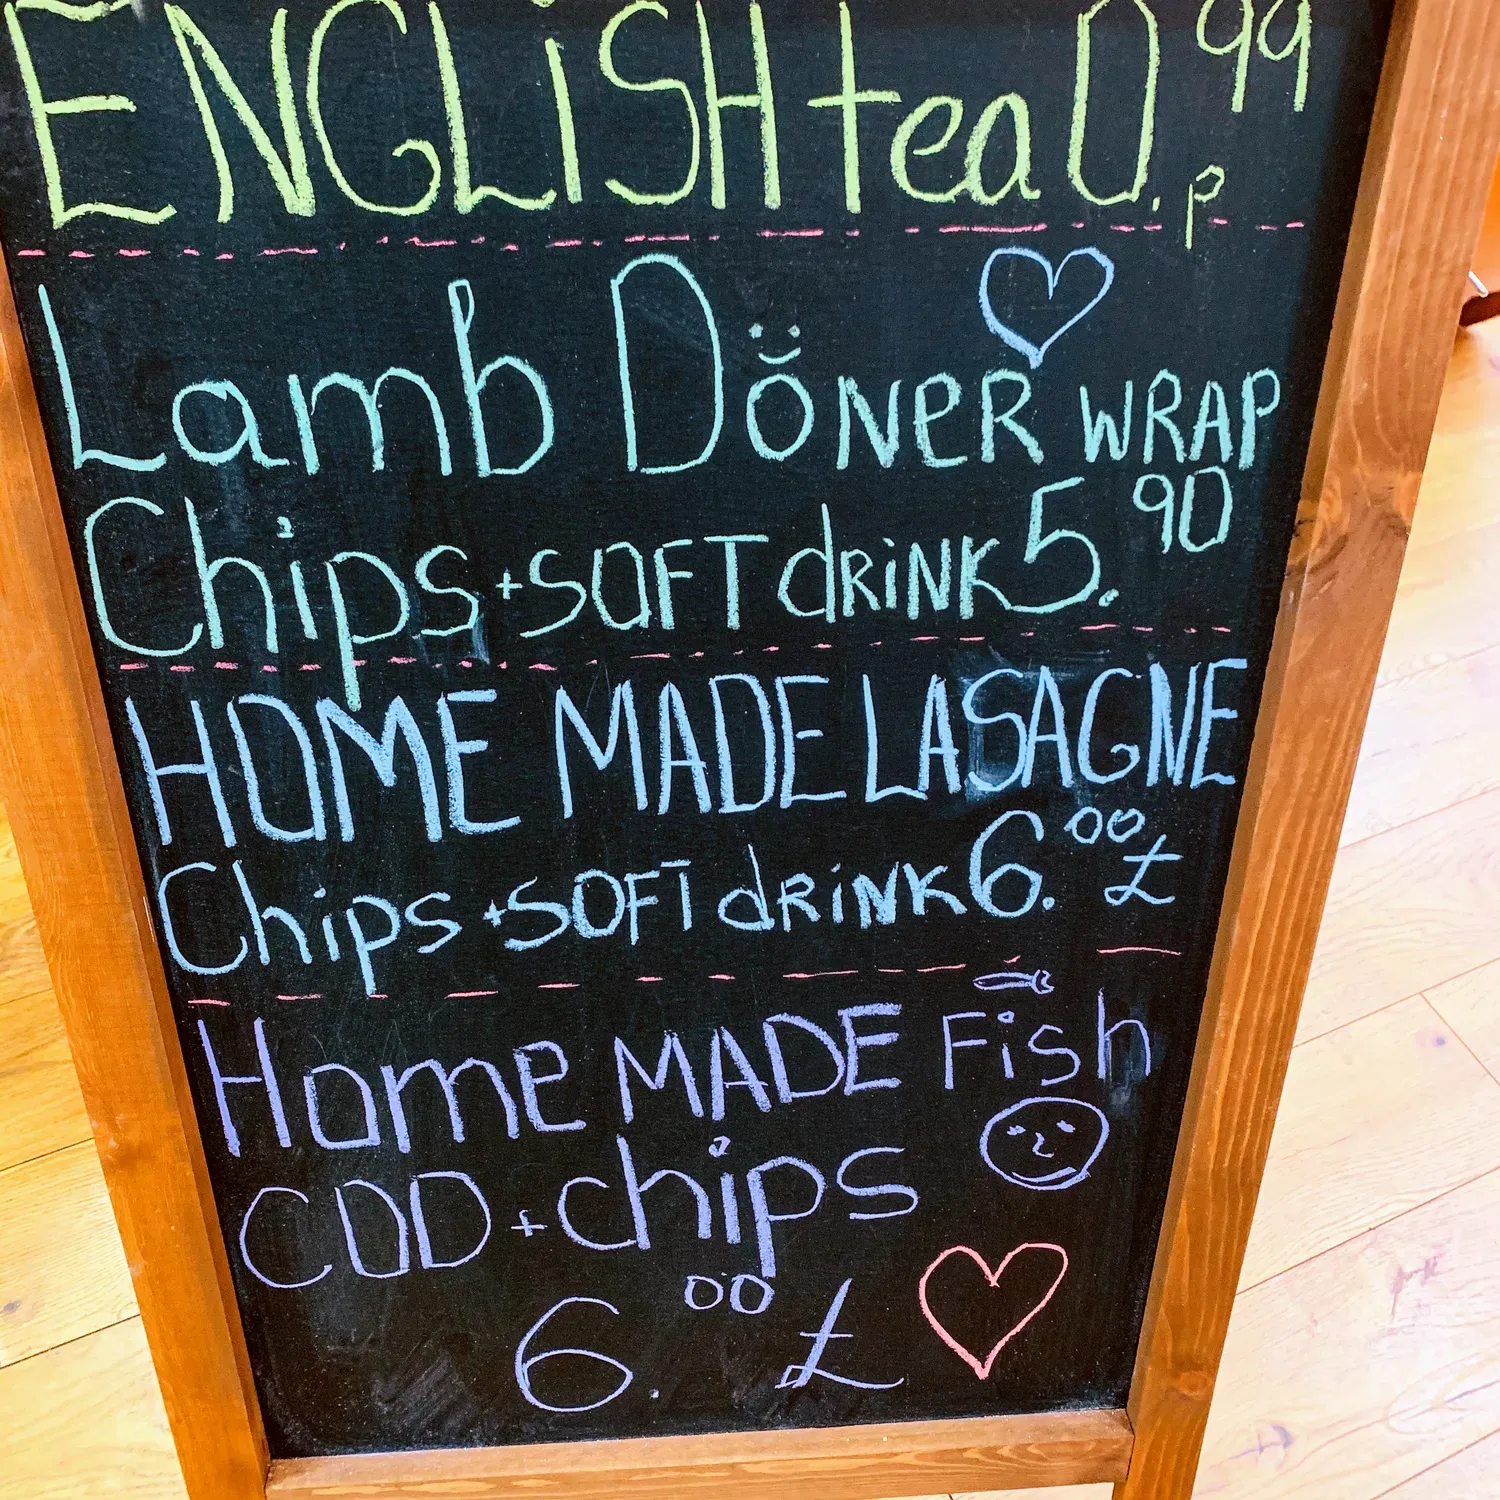 ENGLiSH tea 0.99p
Lamb DÖNeR WRAP
Chips + SOFT dRiNK 5.90
HOME MADE LASAGNE
Chips + SOFT dRiNK 6.00 £
Home MADE Fish
COD + chips
6.00 £